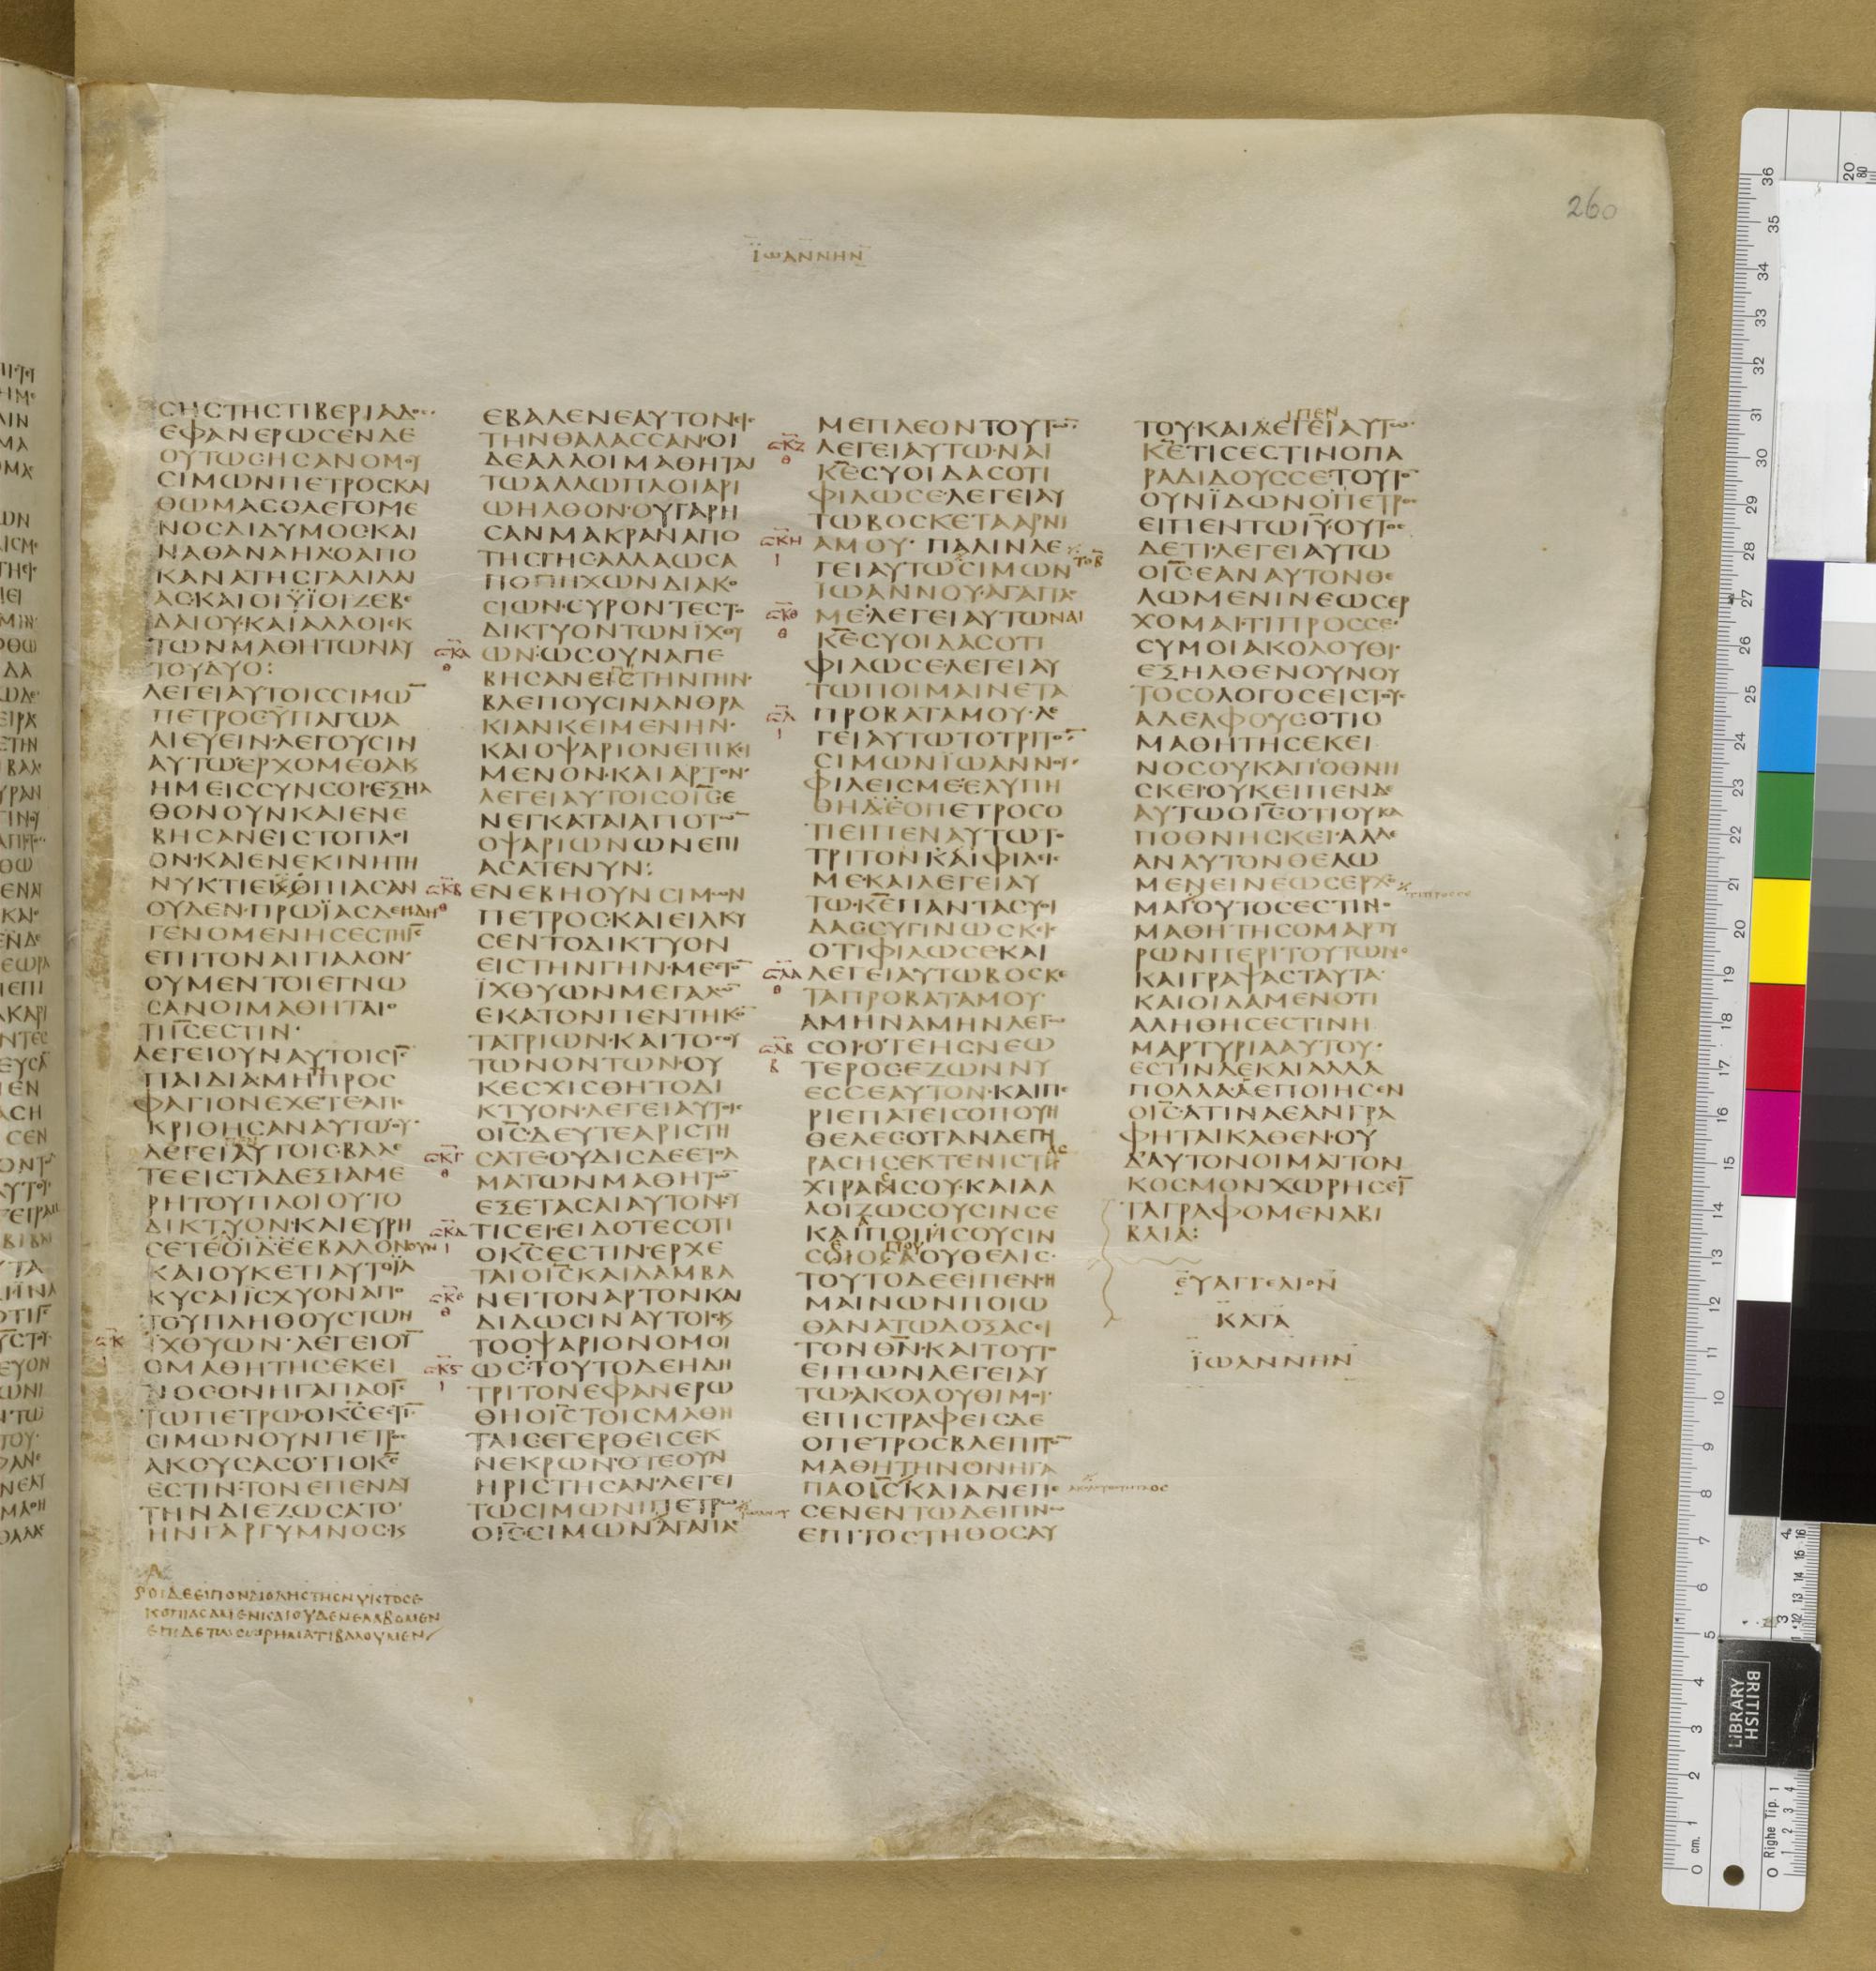 260
ΪΩΑΝΝΗΝ
ϹΗϹΤΗϹΤΙΒΕΡΙΑΔοϲ·
ΕΦΑΝΕΡΩϹΕΝΔΕ
ΟΥΤΩϹΗϹΑΝΟΜΟΥ
ϹΙΜΩΝΠΕΤΡΟϹΚΑΙ
ΘΩΜΑϹΟΛΕΓΟΜΕ
ΝΟϹΔΙΔΥΜΟϹΚΑΙ
ΝΑΘΑΝΑΗΛΟΑΠΟ
ΚΑΝΑΤΗϹΓΑΛΙΛΑΙ
ΑϹ·ΚΑΙΟΙΫΪΟΙΖΕΒΕ
ΔΑΙΟΥ·ΚΑΙΑΛΛΟΙΕΚ
ΤΩΝΜΑΘΗΤΩΝΑΥ
ΤΟΥΔΥΟ:
ΛΕΓΕΙΑΥΤΟΙϹϹΙΜΩ̅
ΠΕΤΡΟϹΥΠΑΓΩΑ
ΛΙΕΥΕΙΝ·ΛΕΓΟΥϹΙΝ
ΑΥΤΩΕΡΧΟΜΕΘΑΚ
ΗΜΕΙϹϹΥΝϹΟΙ·ΕΞΗΛ
ΘΟΝΟΥΝΚΑΙΕΝΕ
ΒΗϹΑΝΕΙϹΤΟΠΛΟΙ
ΟΝ·ΚΑΙΕΝΕΚΙΝΗΤΗ
ΝΥΚΤΙΕΚΟΠΙΑϹΑΝ
ΟΥΔΕΝ·ΠΡΩΪΑϹΔΕΗΔΗ
ΓΕΝΟΜΕΝΗϹΕϹΤΗΙ̅Ϲ̅
ΕΠΙΤΟΝΑΙΓΙΑΛΟΝ·
ΟΥΜΕΝΤΟΙΕΓΝΩ
ϹΑΝΟΙΜΑΘΗΤΑΙΟ
ΤΙΙ̅Ϲ̅ΕϹΤΙΝ·
ΛΕΓΕΙΟΥΝΑΥΤΟΙϹΙ̅Ϲ̅
ΠΑΙΔΙΑΜΗΠΡΟϹ
ΦΑΓΙΟΝΕΧΕΤΕΑΠΕ
ΚΡΙΘΗϹΑΝΑΥΤΩΟΥ·
ΛΕΓΕΙΑΥΤΟΙϹ·ΒΑΛΕ
ΤΕΕΙϹΤΑΔΕΞΙΑΜΕ
ΡΗΤΟΥΠΛΟΙΟΥΤΟ
ΔΙΚΤΥΟΝ·ΚΑΙΕΥΡΗ
ϹΕΤΕΟΙΔΕΕΒΑΛΟΝΟΥΝ
ΚΑΙΟΥΚΕΤΙΑΥΤΟΕΙΛ
ΚΥϹΑΙΪϹΧΥΟΝΑΠΟ
ΤΟΥΠΛΗΘΟΥϹΤΩΝ
ΪΧΘΥΩΝ·ΛΕΓΕΙΟΥ̅
ΟΜΑΘΗΤΗϹΕΚΕΙ
ΝΟϹΟΝΗΓΑΠΑΟΙ̅Ϲ̅
ΤΩΠΕΤΡΩ·ΟΚ̅Ϲ̅ΕϹΤΙ̅
ϹΙΜΩΝΟΥΝΠΕΤΡΟϹ
ΑΚΟΥϹΑϹΟΤΙΟΚ̅Ϲ̅
ΕϹΤΙΝ·ΤΟΝΕΠΕΝΔΥ
ΤΗΝΔΙΕΖΩϹΑΤΟ·
ΗΝΓΑΡΓΥΜΝΟϹ·Κ
ΟΙΔΕΕΙΠΟΝΔΙΟΛΗϹΤΗϹΝΥΚΤΟϹΕ
ΚΟΠΙΑϹΑΜΕΝΚΑΙΟΥΔΕΝΕΛΑΒΟΜΕΝ
ΕΠΙΔΕΤΩϹΩΡΗΜΑΤΙΒΑΛΟΥΜΕΝ
ΕΒΑΛΕΝΕΑΥΤΟΝΕΙϹ
ΤΗΝΘΑΛΑϹϹΑΝ·ΟΙ
ΔΕΑΛΛΟΙΜΑΘΗΤΑΙ
ΤΩΑΛΛΩΠΛΟΙΑΡΙ
ΩΗΛΘΟΝ·ΟΥΓΑΡΗ
ϹΑΝΜΑΚΡΑΝΑΠΟ
ΤΗϹΓΗϹΑΛΛΑΩϹΑ
ΠΟΠΗΧΩΝΔΙΑΚΟ
ϹΙΩΝ·ϹΥΡΟΝΤΕϹΤΟ
ΔΙΚΤΥΟΝΤΩΝΪΧΘΥ
ΩΝ·ΩϹΟΥΝΑΠΕ
ΒΗϹΑΝΕΙϹΤΗΝΓΗΝ·
ΒΛΕΠΟΥϹΙΝΑΝΘΡΑ
ΚΙΑΝΚΕΙΜΕΝΗΝ·
ΚΑΙΟΨΑΡΙΟΝΕΠΙΚΕΙ
ΜΕΝΟΝ·ΚΑΙΑΡΤΟΝ·
ΛΕΓΕΙΑΥΤΟΙϹΟΙ̅Ϲ̅Ε
ΝΕΓΚΑΤΑΙΑΠΟΤΩ̅
ΟΨΑΡΙΩΝΩΝΕΠΙ
ΑϹΑΤΕΝΥΝ:
ΕΝΕΒΗΟΥΝϹΙΜΩΝ
ΠΕΤΡΟϹ·ΚΑΙΕΙΛΚΥ
ϹΕΝΤΟΔΙΚΤΥΟΝ
ΕΙϹΤΗΝΓΗΝ·ΜΕϹΤΟ̅
ΪΧΘΥΩΝΜΕΓΑΛΩ̅
ΕΚΑΤΟΝΠΕΝΤΗΚΟ̅
ΤΑΤΡΙΩΝ·ΚΑΙΤΟϹΟΥ
ΤΩΝΟΝΤΩΝ·ΟΥ
ΚΕϹΧΙϹΘΗΤΟΔΙ
ΚΤΥΟΝ·ΛΕΓΕΙΑΥΤΟΙϹ
ΟΙ̅Ϲ̅·ΔΕΥΤΕΑΡΙϹΤΗ
ϹΑΤΕ·ΟΥΔΙϹΔΕΕΤΟΛ
ΜΑΤΩΝΜΑΘΗΤΩ̅
ΕΞΕΤΑϹΑΙΑΥΤΟΝϹΥ
ΤΙϹΕΙ·ΕΙΔΟΤΕϹΟΤΙ
ΟΚ̅Ϲ̅ΕϹΤΙΝ·ΕΡΧΕ
ΤΑΙΟΙ̅Ϲ̅ΚΑΙΛΑΜΒΑ
ΝΕΙΤΟΝΑΡΤΟΝΚΑΙ
ΔΙΔΩϹΙΝΑΥΤΟΙϹΚ
ΤΟΟΨΑΡΙΟΝΟΜΟΙ
ΩϹ·ΤΟΥΤΟΔΕΗΔΗ
ΤΡΙΤΟΝΕΦΑΝΕΡΩ
ΘΗΟΙ̅Ϲ̅ΤΟΙϹΜΑΘΗ
ΤΑΙϹΕΓΕΡΘΕΙϹΕΚ
ΝΕΚΡΩΝ·ΟΤΕΟΥΝ
ΗΡΙϹΤΗϹΑΝ·ΛΕΓΕΙ
ΤΩϹΙΜΩΝΙΠΕΤΡΩ
ΟΙ̅Ϲ̅ϹΙΜΩΝΑΓΑΠΑϹ
ΜΕΠΛΕΟΝΤΟΥΤΩ̅·
ΛΕΓΕΙΑΥΤΩ·ΝΑΙ
Κ̅Ε̅ϹΥΟΙΔΑϹΟΤΙ
ΦΙΛΩϹΕ·ΛΕΓΕΙΑΥ
ΤΩΒΟϹΚΕΤΑΑΡΝΙ
ΑΜΟΥ· ΠΑΛΙΝΛΕ
ΓΕΙΑΥΤΩϹΙΜΩΝ
ΙΩΑΝΝΟΥ·ΑΓΑΠΑϹ
ΜΕ·ΛΕΓΕΙΑΥΤΩΝΑΙ
Κ̅Ε̅ϹΥΟΙΔΑϹΟΤΙ
ΦΙΛΩϹΕΛΕΓΕΙΑΥ
ΤΩΠΟΙΜΑΙΝΕΤΑ
ΠΡΟΒΑΤΑΜΟΥ·ΛΕ
ΓΕΙΑΥΤΩΤΟΤΡΙΤΟ̅·
ϹΙΜΩΝΪΩΑΝΝΟΥ·
ΦΙΛΕΙϹΜΕ·ΕΛΥΠΗ
ΘΗΔΕΟΠΕΤΡΟϹΟ
ΤΙΕΙΠΕΝΑΥΤΩΤΟ
ΤΡΙΤΟΝΚΑΙΦΙΛΕΙϹ
ΜΕ·ΚΑΙΛΕΓΕΙΑΥ
ΤΩ·Κ̅Ε̅ΠΑΝΤΑϹΥΟΙ
ΔΑϹϹΥΓΙΝΩϹΚΕΙϹ
ΟΤΙΦΙΛΩϹΕΚΑΙ
ΛΕΓΕΙΑΥΤΩΒΟϹΚΕ
ΤΑΠΡΟΒΑΤΑΜΟΥ
ΑΜΗΝΑΜΗΝΛΕΓΩ
ϹΟΙ·ΟΤΕΗϹΝΕΩ
ΤΕΡΟϹΕΖΩΝΝΥ
ΕϹϹΕΑΥΤΟΝ·ΚΑΙΠΕ
ΡΙΕΠΑΤΕΙϹΟΠΟΥΗ
ΘΕΛΕϹ·ΟΤΑΝΔΕΓΗ
ΡΑϹΗϹΕΚΤΕΝΙϹΤΗ̅
ΧΙΡΑΝϹΟΥ·ΚΑΙΑΛ
ΛΟΙΖΩϹΟΥϹΙΝϹΕ
ΚΑΙΠΟΙΗϹΟΥϹΙΝ
ϹΟΙΟϹΑΟΥΘΕΛΙϹ·
ΤΟΥΤΟΔΕΕΙΠΕΝϹΗ
ΜΑΙΝΩΝΠΟΙΩ
ΘΑΝΑΤΩΔΟΞΑϹΕΙ
ΤΟΝΘ̅Ν̅·ΚΑΙΤΟΥΤΟ
ΕΙΠΩΝΛΕΓΕΙΑΥ
ΤΩ·ΑΚΟΛΟΥΘΙΜΟΙ·
ΕΠΙϹΤΡΑΦΕΙϹΔΕ
ΟΠΕΤΡΟϹΒΛΕΠΙΤΟ̅
ΜΑΘΗΤΗΝΟΝΗΓΑ
ΠΑΟΙ̅Ϲ̅ΚΑΙΑΝΕΠΕ
ϹΕΝΕΝΤΩΔΕΙΠΝΩ
ΕΠΙΤΟϹΤΗΘΟϹΑΥ
ΤΟΥ·ΚΑΙΛΕΓΕΙΑΥΤΩ·
Κ̅Ε̅ΤΙϹΕϹΤΙΝΟΠΑ
ΡΑΔΙΔΟΥϹϹΕ·ΤΟΥΤΟ̅
ΟΥΝΪΔΩΝΟΠΕΤΡΟϹ
ΕΙΠΕΝΤΩΙ̅Υ̅·ΟΥΤΟϹ
ΔΕΤΙ·ΛΕΓΕΙΑΥΤΩ
ΟΙ̅Ϲ̅ΕΑΝΑΥΤΟΝΘΕ
ΛΩΜΕΝΙΝΕΩϹΕΡ
ΧΟΜΑΙ·ΤΙΠΡΟϹϹΕ·
ϹΥΜΟΙΑΚΟΛΟΥΘΙ·
ΕΞΗΛΘΕΝΟΥΝΟΥ
ΤΟϹΟΛΟΓΟϹΕΙϹΤΟΥϹ
ΑΔΕΛΦΟΥϹΟΤΙΟ
ΜΑΘΗΤΗϹΕΚΕΙ
ΝΟϹΟΥΚΑΠΟΘΝΗ
ϹΚΕΙ·ΟΥΚΕΙΠΕΝΔΕ
ΑΥΤΩΟΙ̅Ϲ̅ΟΤΙΟΥΚΑ
ΠΟΘΝΗϹΚΕΙ·ΑΛΛΕ
ΑΝΑΥΤΟΝΘΕΛΩ
ΜΕΝΕΙΝΕΩϹΕΡΧΟ
ΜΑΙΟΥΤΟϹΕϹΤΙΝΟ
ΜΑΘΗΤΗϹΟΜΑΡΤΥ
ΡΩΝΠΕΡΙΤΟΥΤΩΝΟ
ΚΑΙΓΡΑΨΑϹΤΑΥΤΑ·
ΚΑΙΟΙΔΑΜΕΝΟΤΙ
ΑΛΗΘΗϹΕϹΤΙΝΗ
ΜΑΡΤΥΡΙΑΑΥΤΟΥ·
ΕϹΤΙΝΔΕΚΑΙΑΛΛΑ
ΠΟΛΛΑ·ΑΕΠΟΙΗϹΕΝ
ΟΙ̅Ϲ̅·ΑΤΙΝΑΕΑΝΓΡΑ
ΦΗΤΑΙΚΑΘΕΝ·ΟΥ
Δ᾽ΑΥΤΟΝΟΙΜΑΙΤΟΝ
ΚΟϹΜΟΝΧΩΡΗϹΕΙ̅
ΤΑΓΡΑΦΟΜΕΝΑΒΙ
ΒΛΙΑ:
ΕΥΑΓΓΕΛΙΟΝ
ΚΑΤΑ
ΪΩΑΝΝΗΝ
BRITISH
LIBRARY